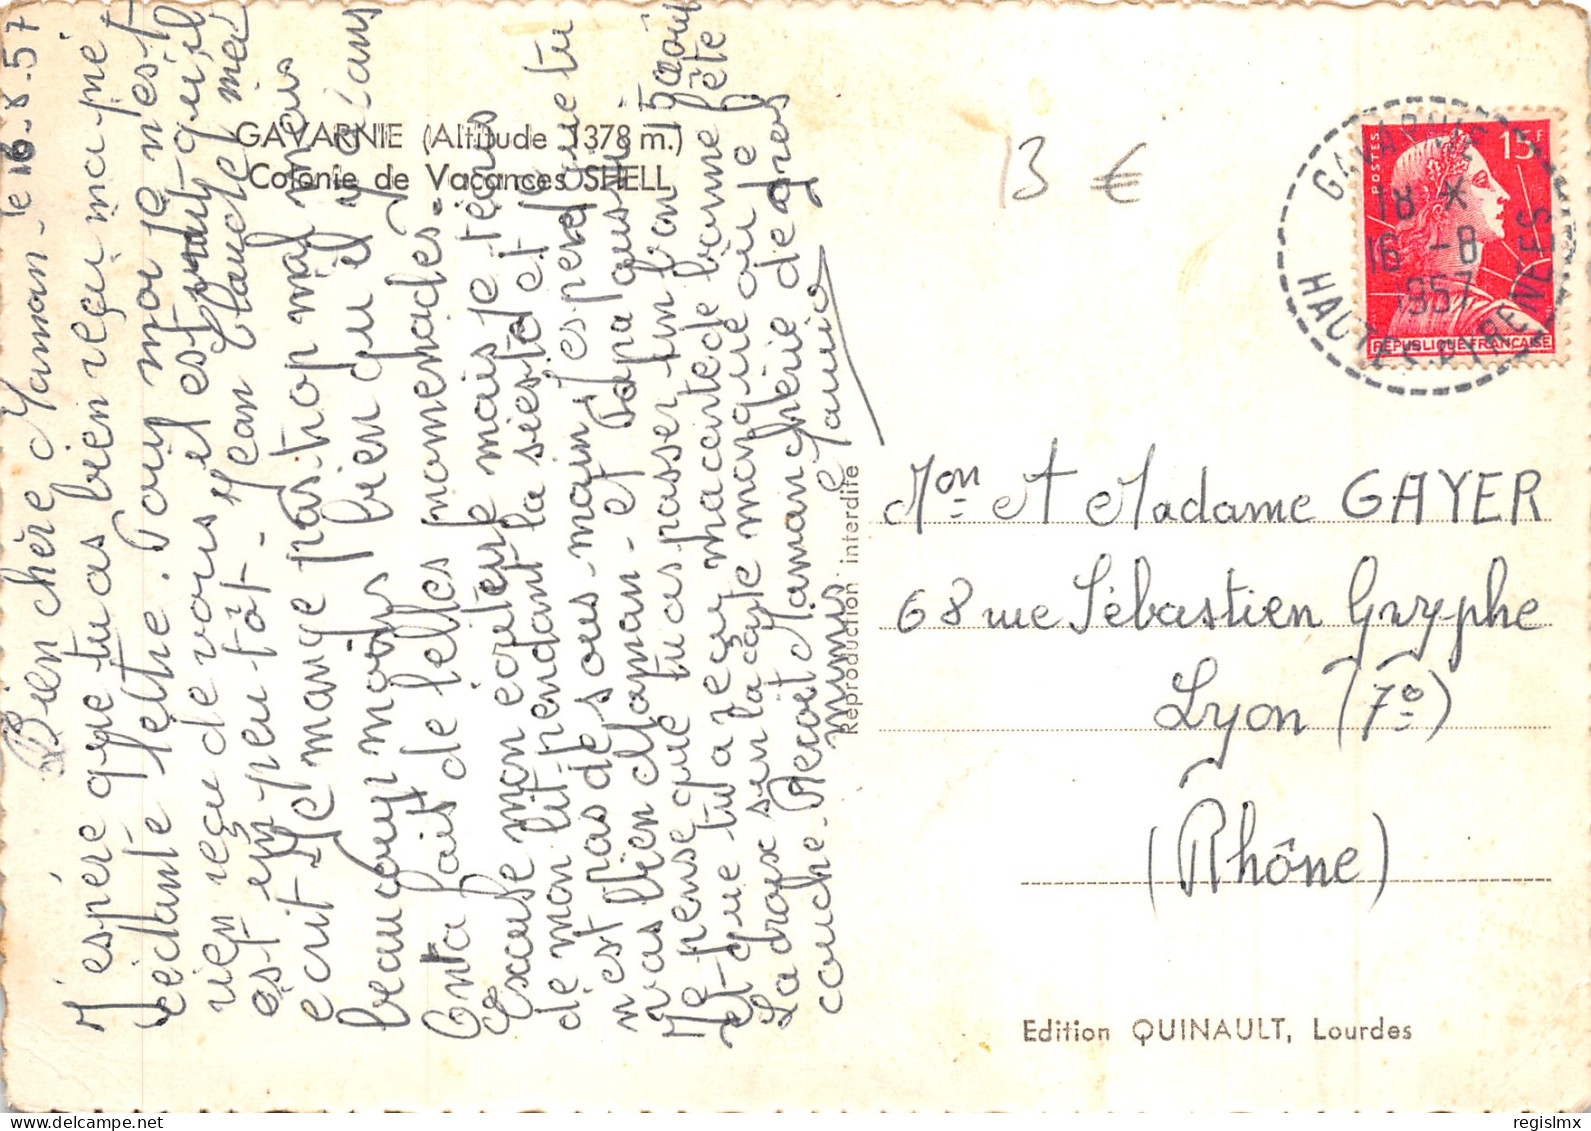 le 16-8-57
Bien chère Maman
J'espère que tu as bien reçu ma pré
sédante lettre. Pour moi je n'est
rien reçu de vous et est peut-qu'il
est un peu tôt - Jean Claude m'a
écrit. Je mange pas trop mal mais
beaucoup moins bien qu'il y a 2 ans
On a fait de belles promenades.
Excuse mon écriture mais je t'écris
de mon lit pendant la sieste et je
n'est pas de sous-main, j'espere que tu
vas bien Maman - et Papa aussi -
Je pense que tu as passer un bon 15 août
et que tu a reçu ma carte de bonne fête
La croix sur la carte marque où je
couche. Recoit Maman chérie de gros
mimis
GAVARNIE (Altitude 1378 m.)
Colonie de Vacances SHELL
Reproduction interdite
13 €
POSTES
15F
REPUBLIQUE FRANÇAISE
GAVARNIE
18 *
16 -8
1957
HAUTES PYRENEES
Mon et Madame GAYER
68 rue Sébastien Gryphe
Lyon (7e)
(Rhône)
Edition QUINAULT, Lourdes
www.delcampe.net
regislmx